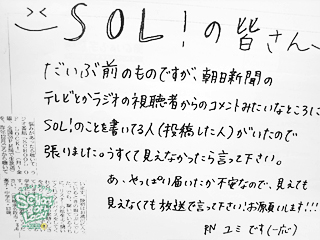 SOL!の皆さんへ
だいぶ前のものですが、朝日新聞の
テレビとかラジオの視聴者からのコメントみたいなところに
SOL!のことを書いてる人(投稿した人)がいたので
張りました。うすくて見えなかったら言って下さい。
あ、やっぱり届いたか不安なので、見えても
見えなくても放送で言って下さい!お願いします!!!
RN ユミ です(一応)